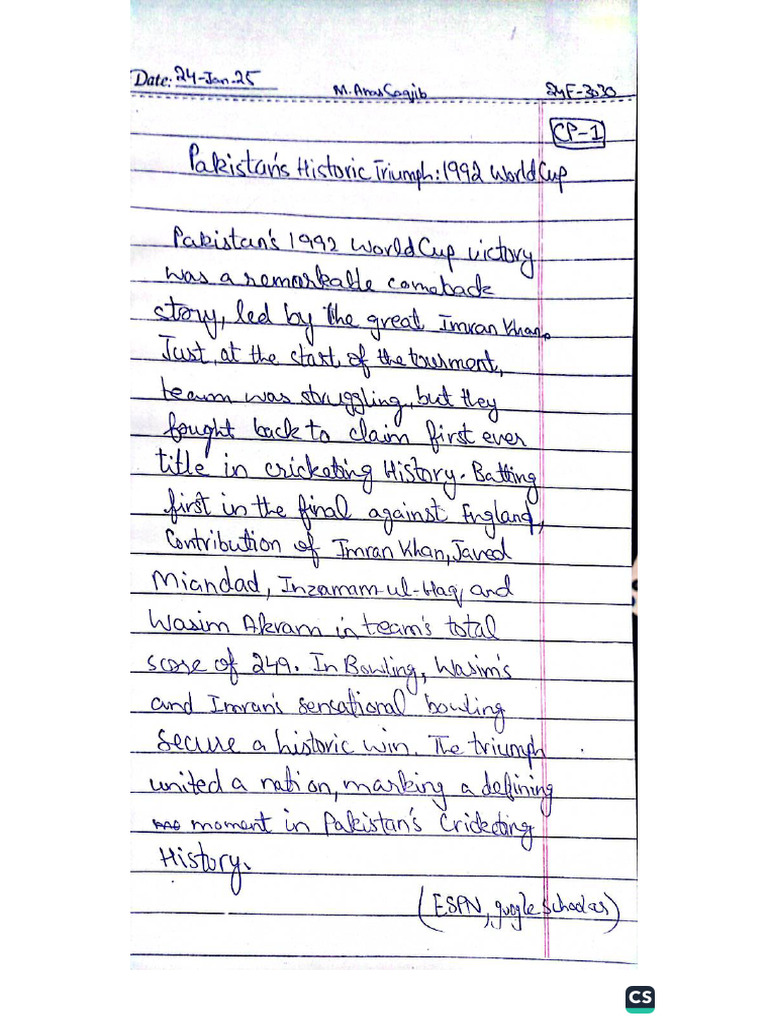 Date: 24-Jan-25
M. Anas
CP-1
Pakistan's Historic Triumph: 1992 World Cup
Pakistan's 1992 World Cup victory
was a remarkable comeback
story, led by the great Imran Khan.
Just, at the start of the tourment,
team was struggling, but they
fought back to claim first ever
title in cricketing History. Batting
first in the final against England,
Contribution of Imran Khan, Javed
Miandad, Inzamam-ul-Haq, and
Wasim Akram in team's total
score of 249. In Bowling, Wasim's
and Imran's sensational bowling
secure a historic win. The triumph
united a nation, marking a defining
moment in Pakistan's Cricketing
History.
(ESPN, google scholar)
CS